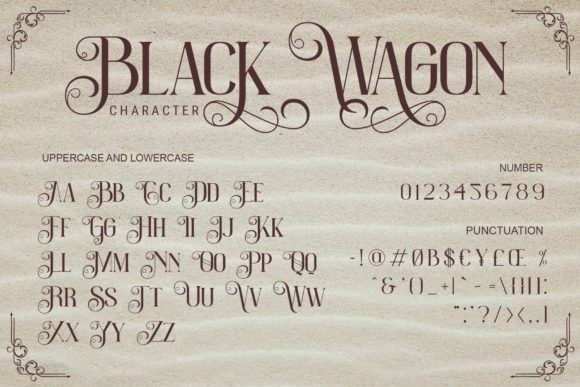 BLACK WAGON
CHARACTER
UPPERCASE AND LOWERCASE
AA BB CC DD EE
FF GG HH II JJ KK
LL MM NN OO PP QQ
RR SS TT UU VV WW
XX YY ZZ
NUMBER
0123456789
PUNCTUATION
-!@#ØB$€¥£Œ %
^&*()_+|`- =\{}[]:
";'?/><,.]